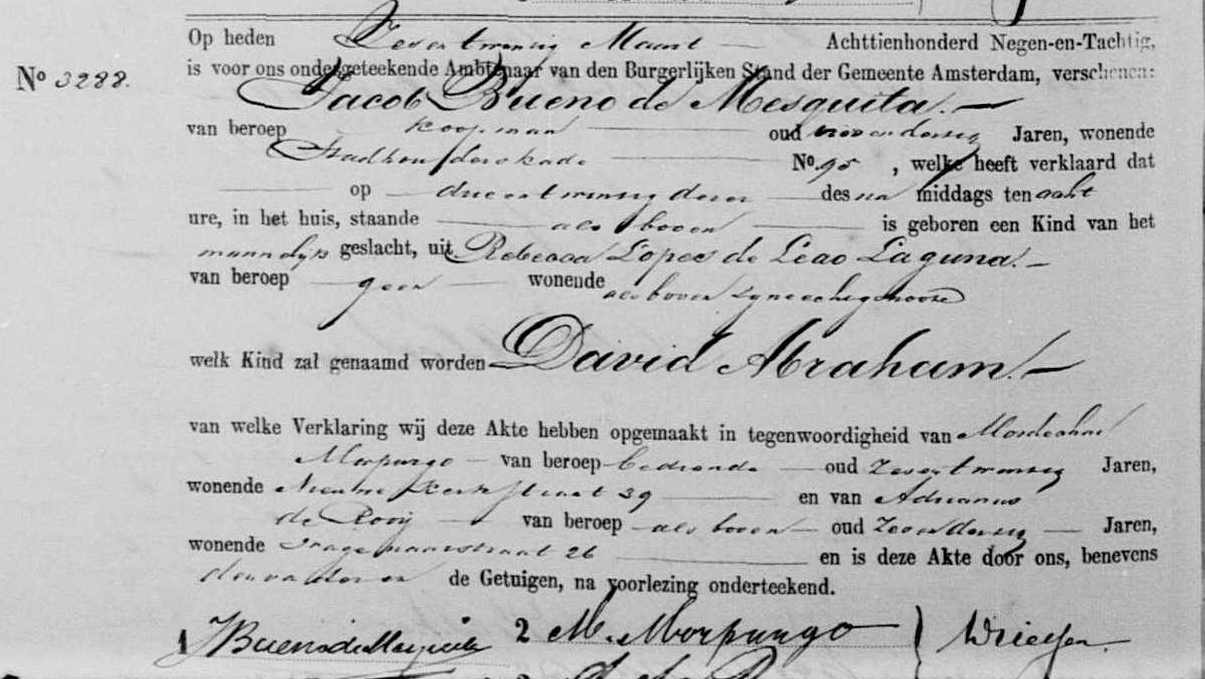 Op heden Zeventwintig Maart — Achttienhonderd Negen-en-Tachtig,
No 3288.
is voor ons ondergeteekende Ambtenaar van den Burgerlijken Stand der Gemeente Amsterdam, verschenen:
Jacob Bueno de Mesquita. —
van beroep Koopman — oud Jaren, wonende
Stadhouderskade — No. 95, welke heeft verklaard dat
— op — dezer — des na middags ten acht
ure, in het huis, staande — als boven — is geboren een Kind van het
mannelijk geslacht, uit Rebecca Lopes de Leao Laguna. —
van beroep — geen — wonende als boven zijne echtgenoote
welk Kind zal genaamd worden David Abraham. —
van welke Verklaring wij deze Akte hebben opgemaakt in tegenwoordigheid van Mordechai
Morpurgo — van beroep bediende — oud Zeventwintig Jaren,
wonende Nieuwe Kerkstraat 39 — en van Adrianus
de Rooij — van beroep — als boven — oud — Jaren,
wonende 26 — en is deze Akte door ons, benevens
de Getuigen, na voorlezing onderteekend.
1 JBuenodeMesquita 2 M. Morpurgo — }